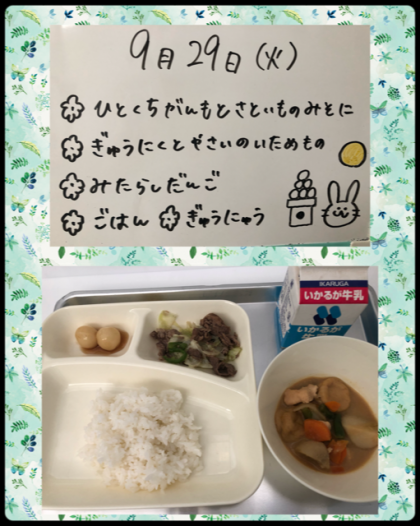 9月29日(火)
ひとくちがんもとさといものみそに
ぎゅうにくとやさいのいためもの
みたらしだんご
ごはん ぎゅうにゅう
IKARUGA
いかるが牛乳
いかるが